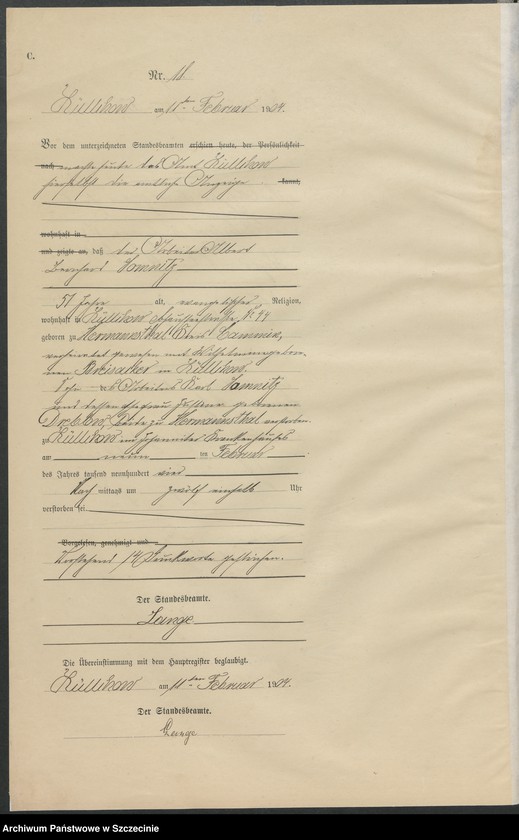 C.
Nr. 18.
Züllchow am 11ten Februar 1904.
Vor dem unterzeichneten Standesbeamten erschien heute, der Persönlichkeit
nach machte heute das Amt Züllchow
hierselbst die amtliche Anzeige kannt,
wohnhaft in
und zeigte an, daß der Arbeiter Albert
Bernhard Somnitz
51 Jahre alt, evangelischer Religion,
wohnhaft in Züllchow Chausseestraße N. 44
geboren zu Hermannsthal Kreis Cammin,
verheiratet gewesen mit Wilhelmine gebor-
nen in Züllchow.
Sohn des Arbeiters Karl Somnitz
und dessen Ehefrau geborenen
zu Hermannsthal verstorben.
zu Züllchow im Johanniter Krankenhause
am neun ten Februar
des Jahres tausend neunhundert vier
Nach mittags um zwölf einhalb Uhr
verstorben sei
Vorgelesen, genehmigt und
Vorstehend 14 Druckworte gestrichen.
Der Standesbeamte.
Lange
Die Übereinstimmung mit dem Hauptregister beglaubigt.
Züllchow am 11ten Februar 1904.
Der Standesbeamte.
Lange
Archiwum Państwowe w Szczecinie